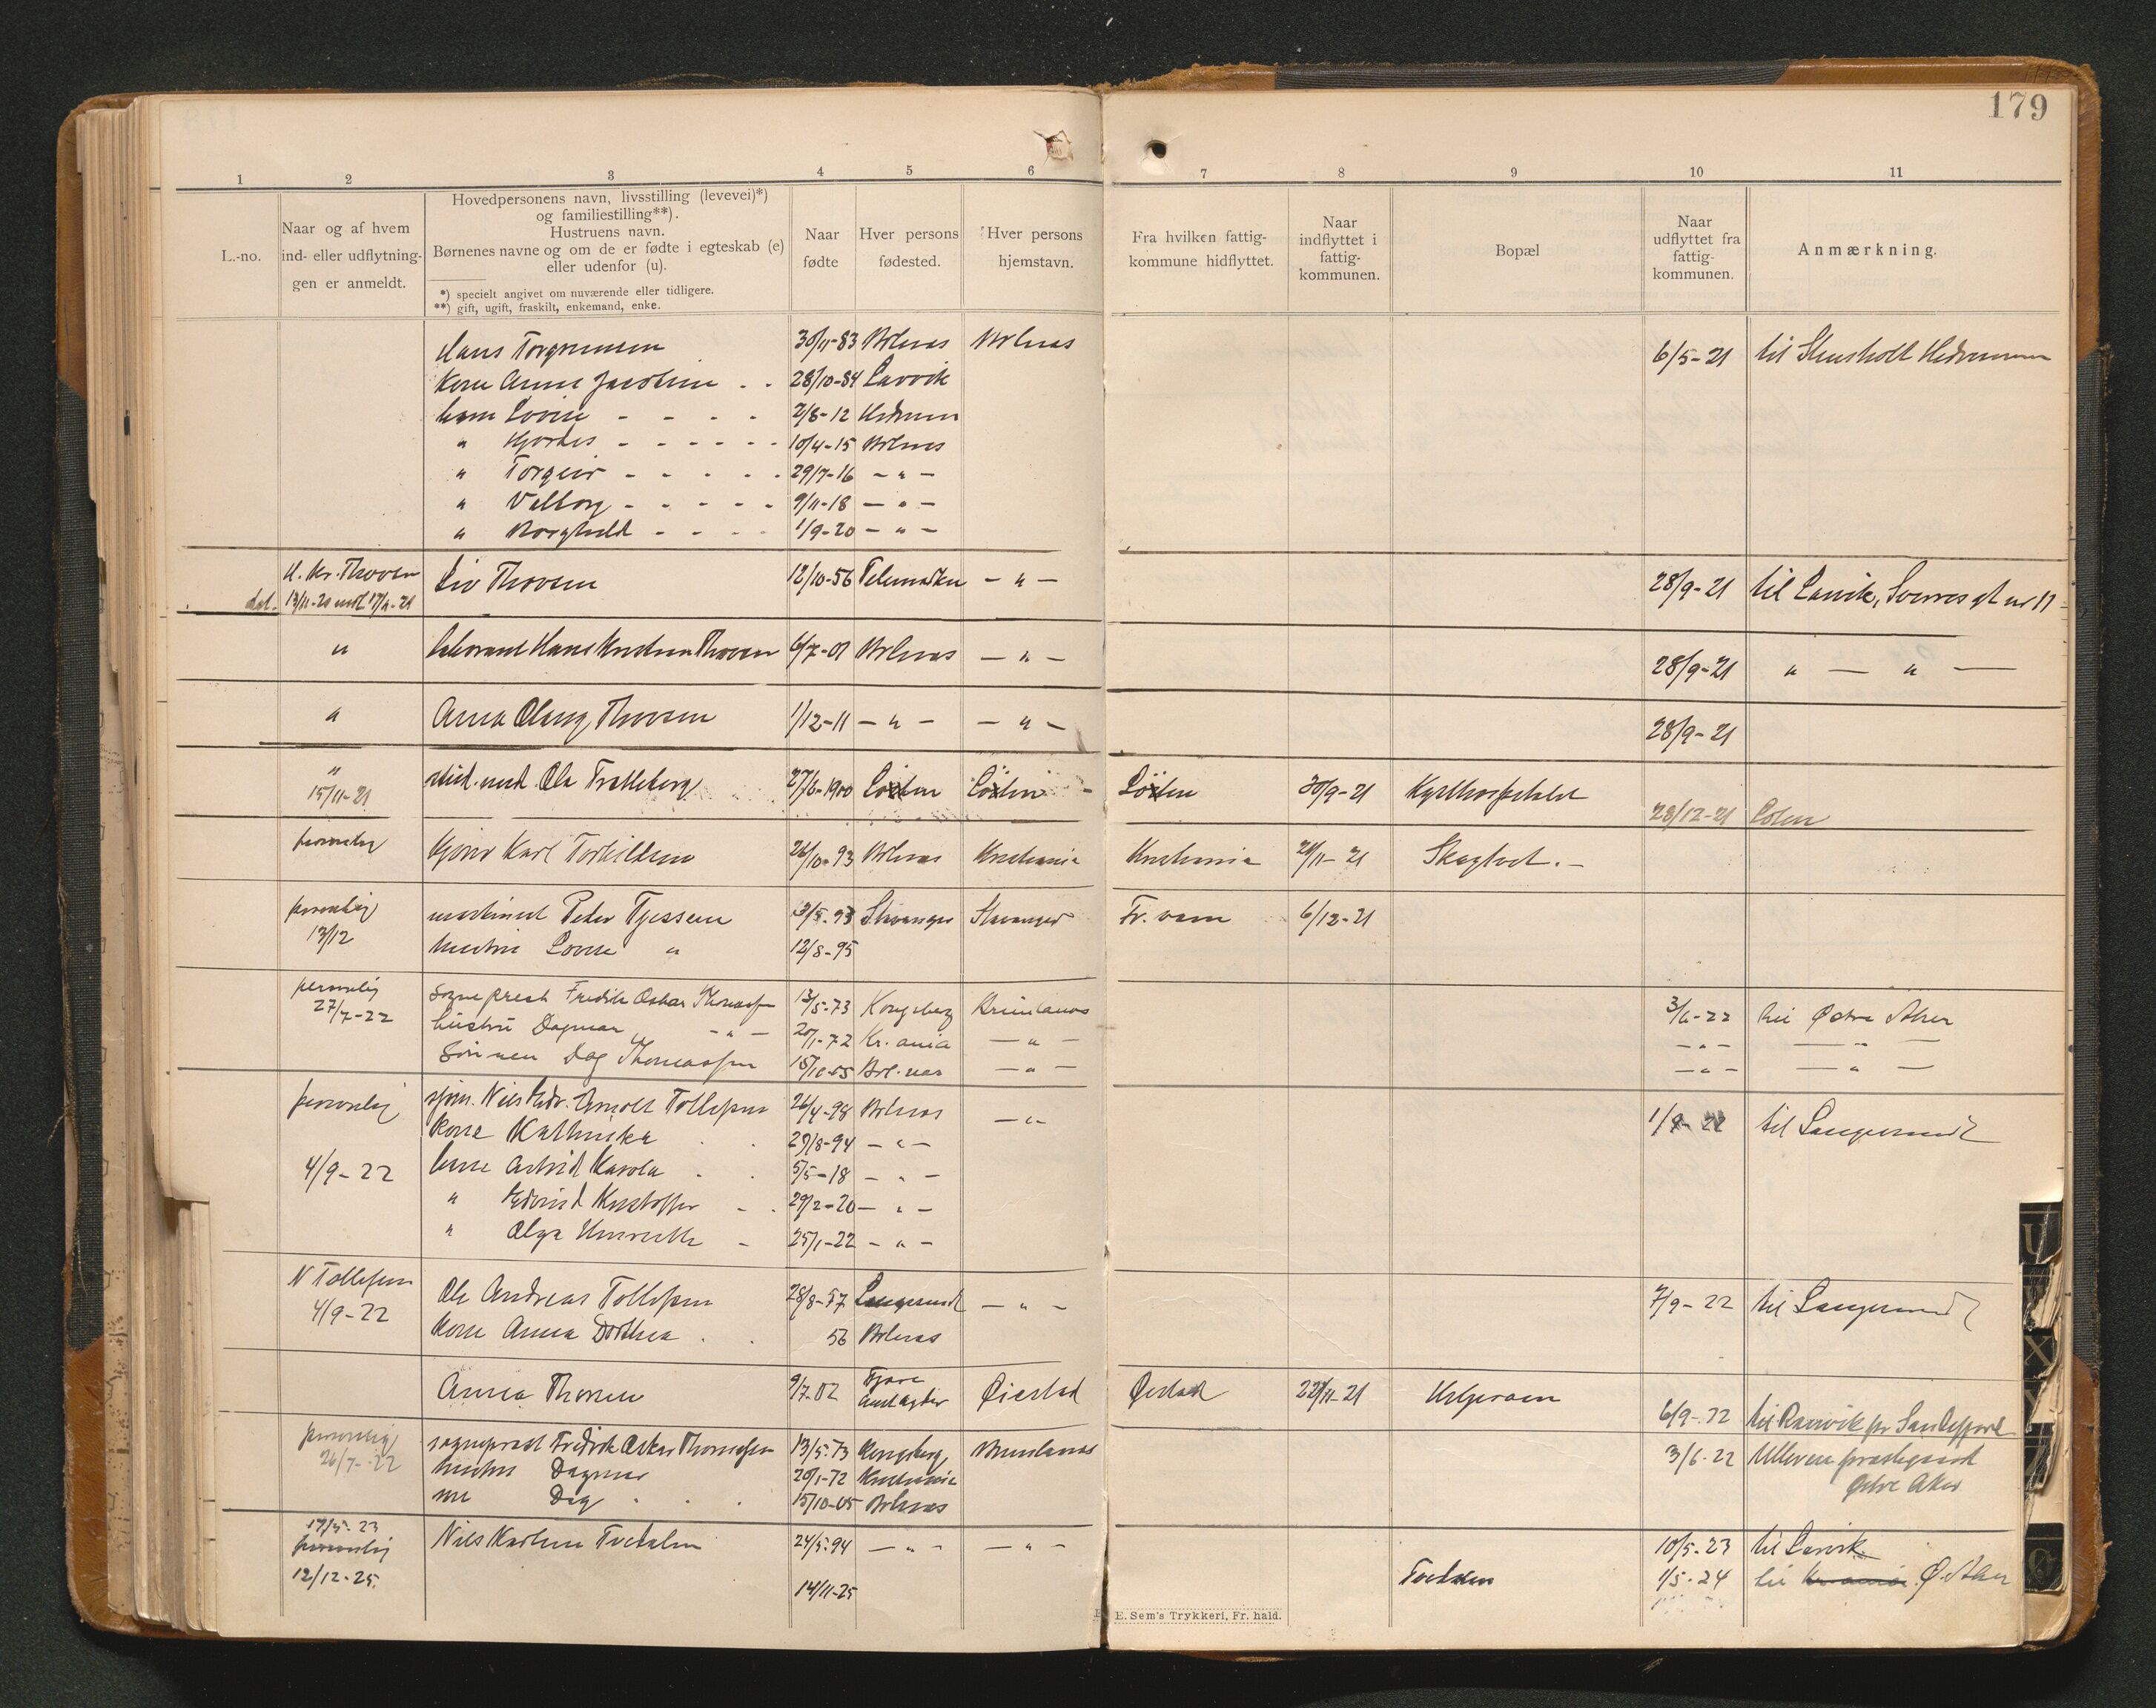 179
1 2 3 4 5 6 7 8 9 10 11
L.-no.
Naar og af hvem
ind- eller udflytnin-
gen er anmeldt.
Hovedpersonens navn, livsstilling (levevei)*)
og familiestilling**).
Hustruens navn.
Børnenes navne og om de er fødte i egteskab (e)
eller udenfor (u).
*) specielt angivet om nuværende eller tidligere.
**) gift, ugift, fraskilt, enkemand, enke.
Naar
fødte
Hver persons
fødested.
Hver persons
hjemstavn.
Fra hvilken fattig-
kommune hidflyttet.
Naar
indflyttet i
fattig-
kommunen.
Bopæl
Naar
udflyttet fra
fattig-
kommunen.
Anmærkning.
Hans Torgrimsen 30/11-83 Brlnas Brlnas 6/5-21 til Stensholt Hedrummen
Kone Anne Jacobine 28/10-84 Larvik
barn Lovise 2/8-12 Hedrum
" Hjørdis 10/4-15 Brlnes
" Torgeir 29/7-16 - " -
" Valborg 9/11-18 - " -
" Borghild 1/9-20 - " -
H. Kr. Thovsen Liv Thovsen 12/10-56 Telemarken - " - 28/9-21 til Larvik, Sverres gt nr 11
" Hans Kristian Thovsen 6/7-01 Brlnas - " - 28/9-21 " - " -
" Anna Olang Thovsen 1/12-11 - " - - " - 28/9-21
" stud. med. Ola Tratteberg 27/6-1900 Löten Löten Löten 30/9-21 Kysthospitalet
15/11-21 28/12-21 Löten
personlig Karl Torkildsen 26/10-93 Brlnas Kristiania Kristiania 21/11-21 Skaglvet.-
personlig maskinist Peder Tjessem 3/5-93 Stavanger Stavanger Fr. vern 6/12-21
13/12 hustru Lovise " 12/8-95
personlig Sogneprest Fredrik Oskar Thomassen 13/5-73 Kongsberg Brunlanes 3/6-22 til Østre Aker
27/7-22 hustru Dagmar - " - 20/1-72 Kr.ania - " - - " - - " -
Sønnen Dag Thomassen 15/10-05 Brl.nes - " - - " - - " -
personlig sjøm. Nils Edv. Arnolt Tollefsen 26/4-98 Brlnas - " - 1/9-22 til Langesund
Kone Kathinka 29/8-94 - " -
4/9-22 barn Astrid Karola 5/5-18 - " -
" Edvind Kristoffer 29/2-20 - " -
" Olga Henriette 25/1-22 - " -
N Tollefsen Ole Andreas Tollefsen 28/8-57 Langesund - " - 7/9-22 til Langesund
4/9-22 Kone Anna Dorthea 56 Brlnas
Anna Thorsen 9/7-02 Fjære Aust Agder Øiestad Øiestad 22/11-21 Helgeroen 6/9-22 til Ranvik pr Sandefjord
personlig sogneprest Fredrik Oskar Thomassen 13/5-73 Kongsberg Brunlanes 3/6-22 Ulleren prestegaard
26/7-22 hustru Dagmar 20/1-72 Kristiania Østre Aker
Dag 15/10-05 Brlnas
17/5-23 Nils Karlsen Tvedalen 24/5-94 - " - - " - 10/5-23 til Larvik
personlig
12/12-25 14/11-25 Tvedalen 1/5-24 til Kr.ania Ø. Aker
E. Sem's Trykkeri, Fr. hald.